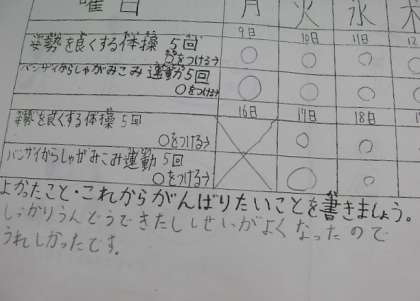 曜日 月 火 水 木
9日 10日 11日 12
姿勢を良くする体操 5回
○をつけよう→ ○ ○ ○
バンザイからしゃがみこみ運動5回
○をつけよう→ ○ ○ ○
16日 17日 18日
姿勢を良くする体操5回
○をつけよう→ ○ ○
バンザイからしゃがみこみ運動5回
○をつけよう→ ○ ○
よかったこと・これからがんばりたいことを書きましょう。
しっかりうんどうできたししせいがよくなったので
うれしかったです。